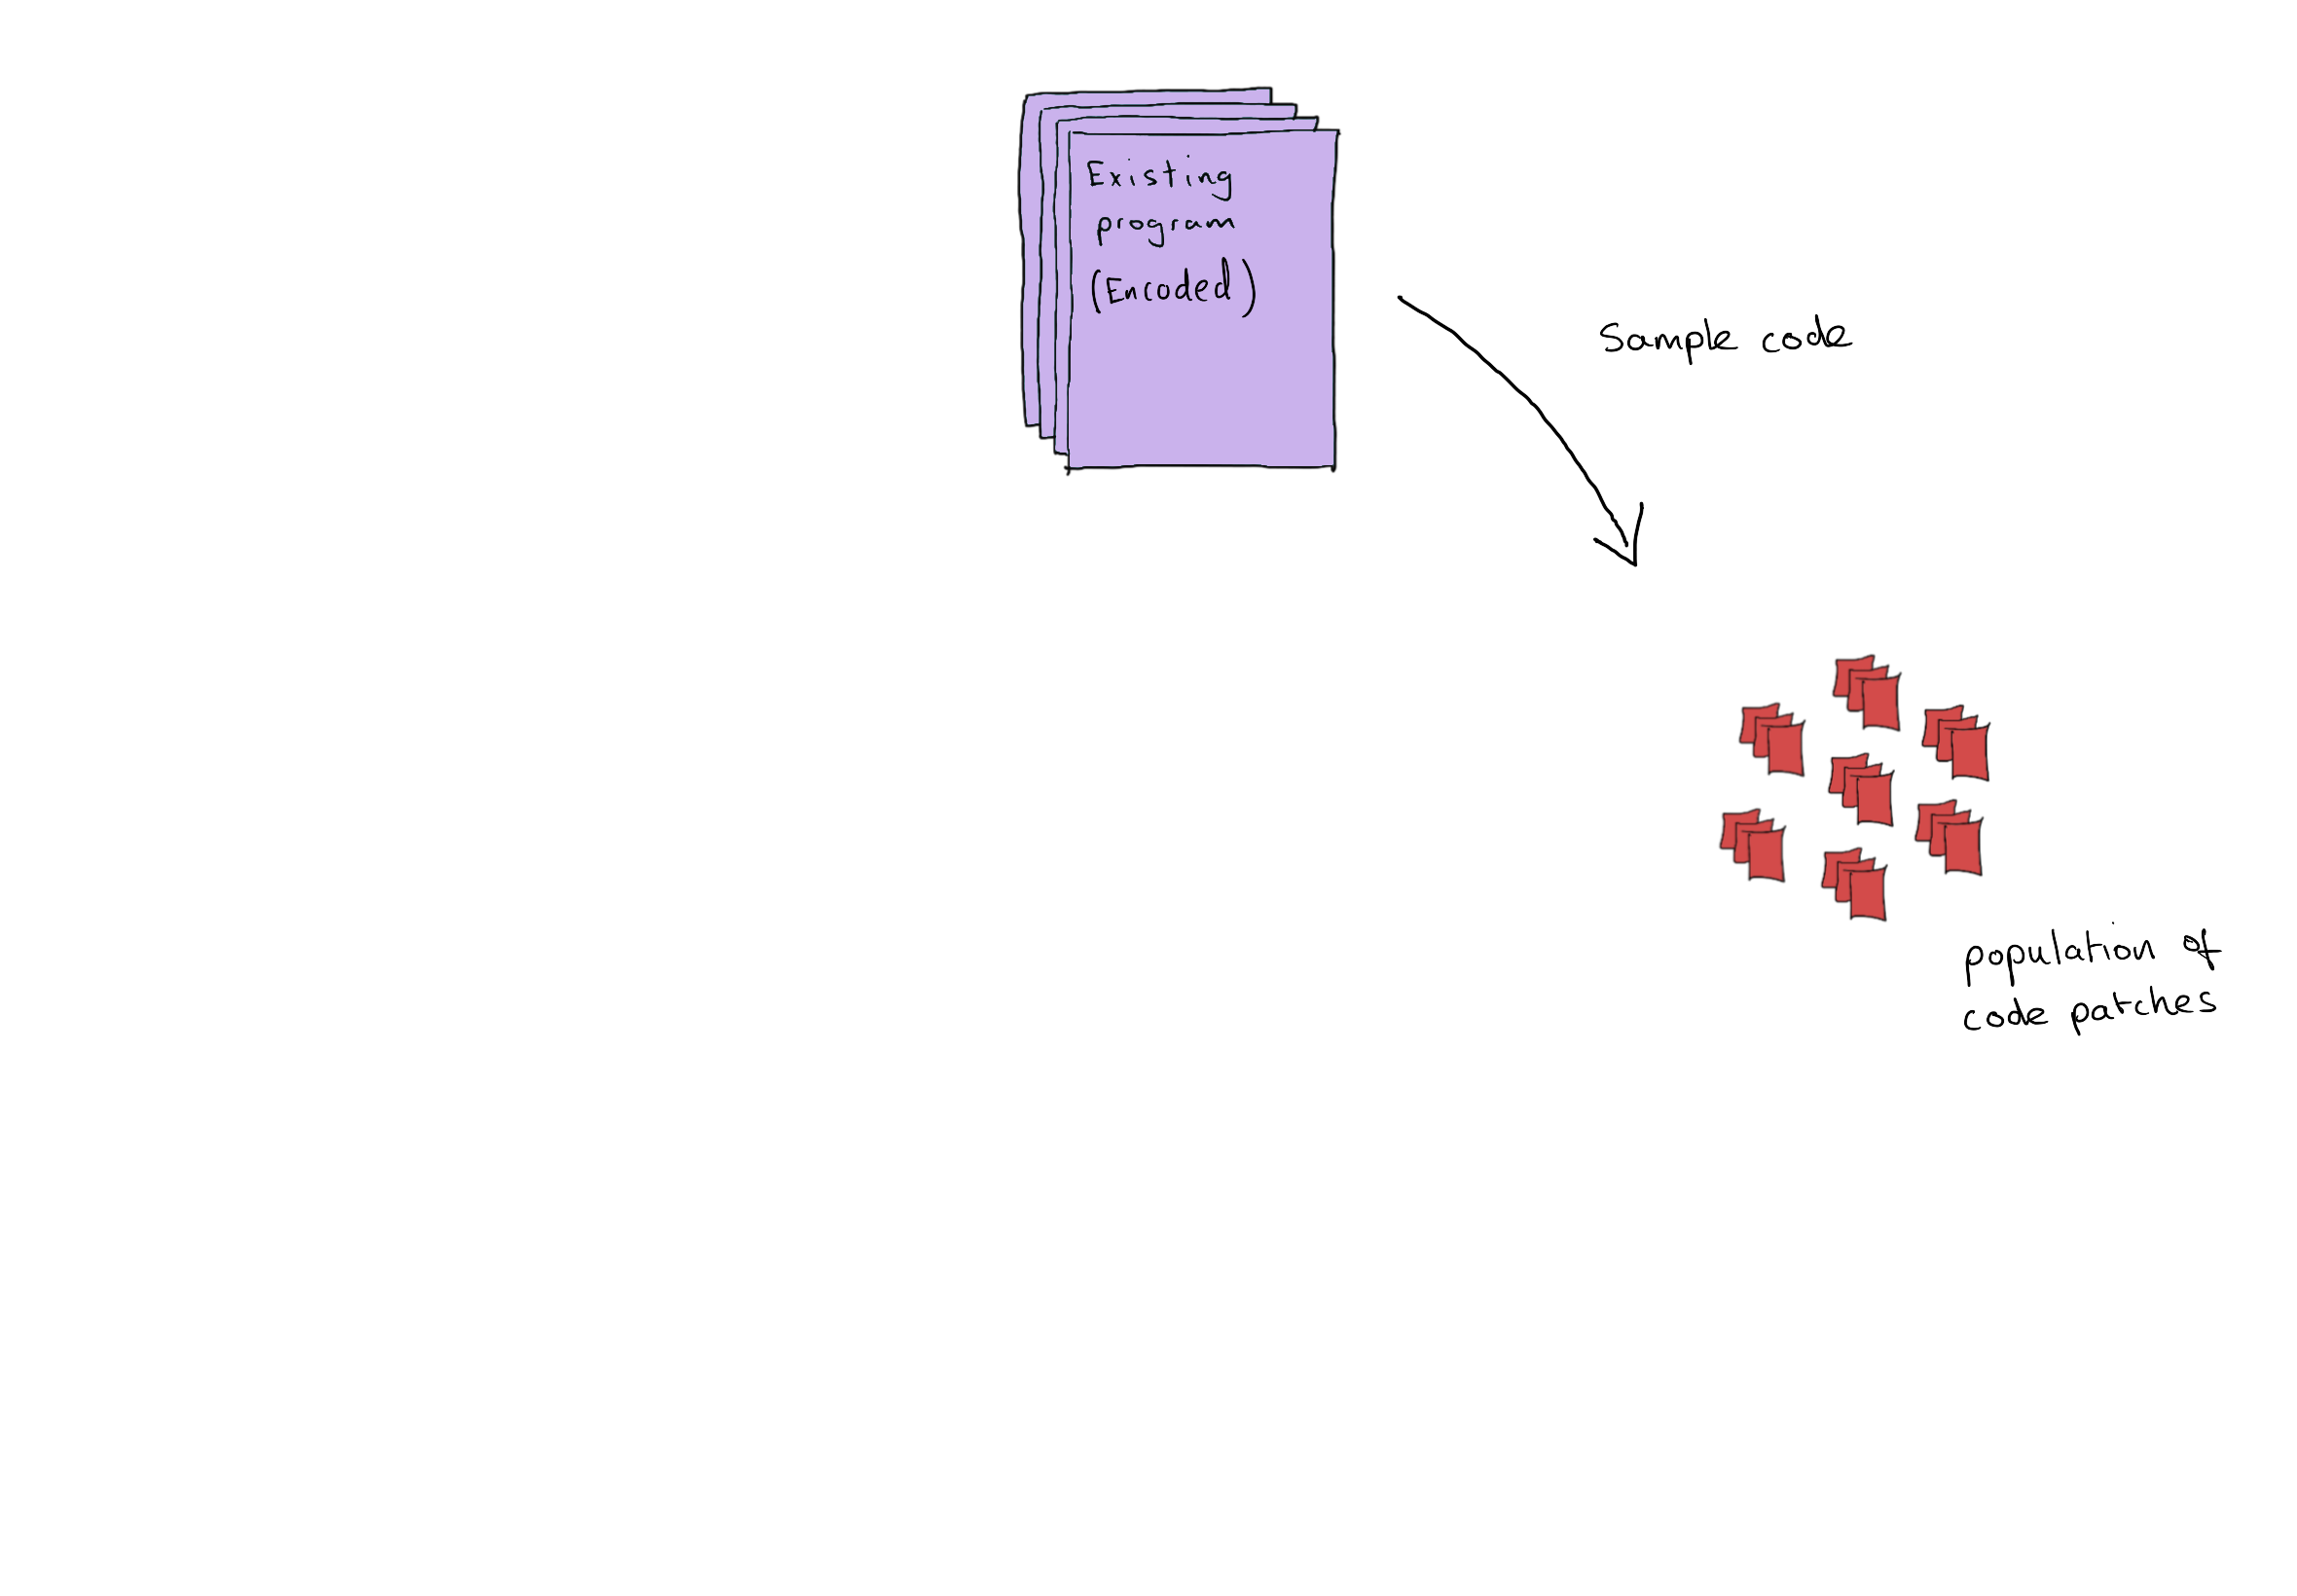 Existing
program
(Encoded)
Sample code
population of
code patches